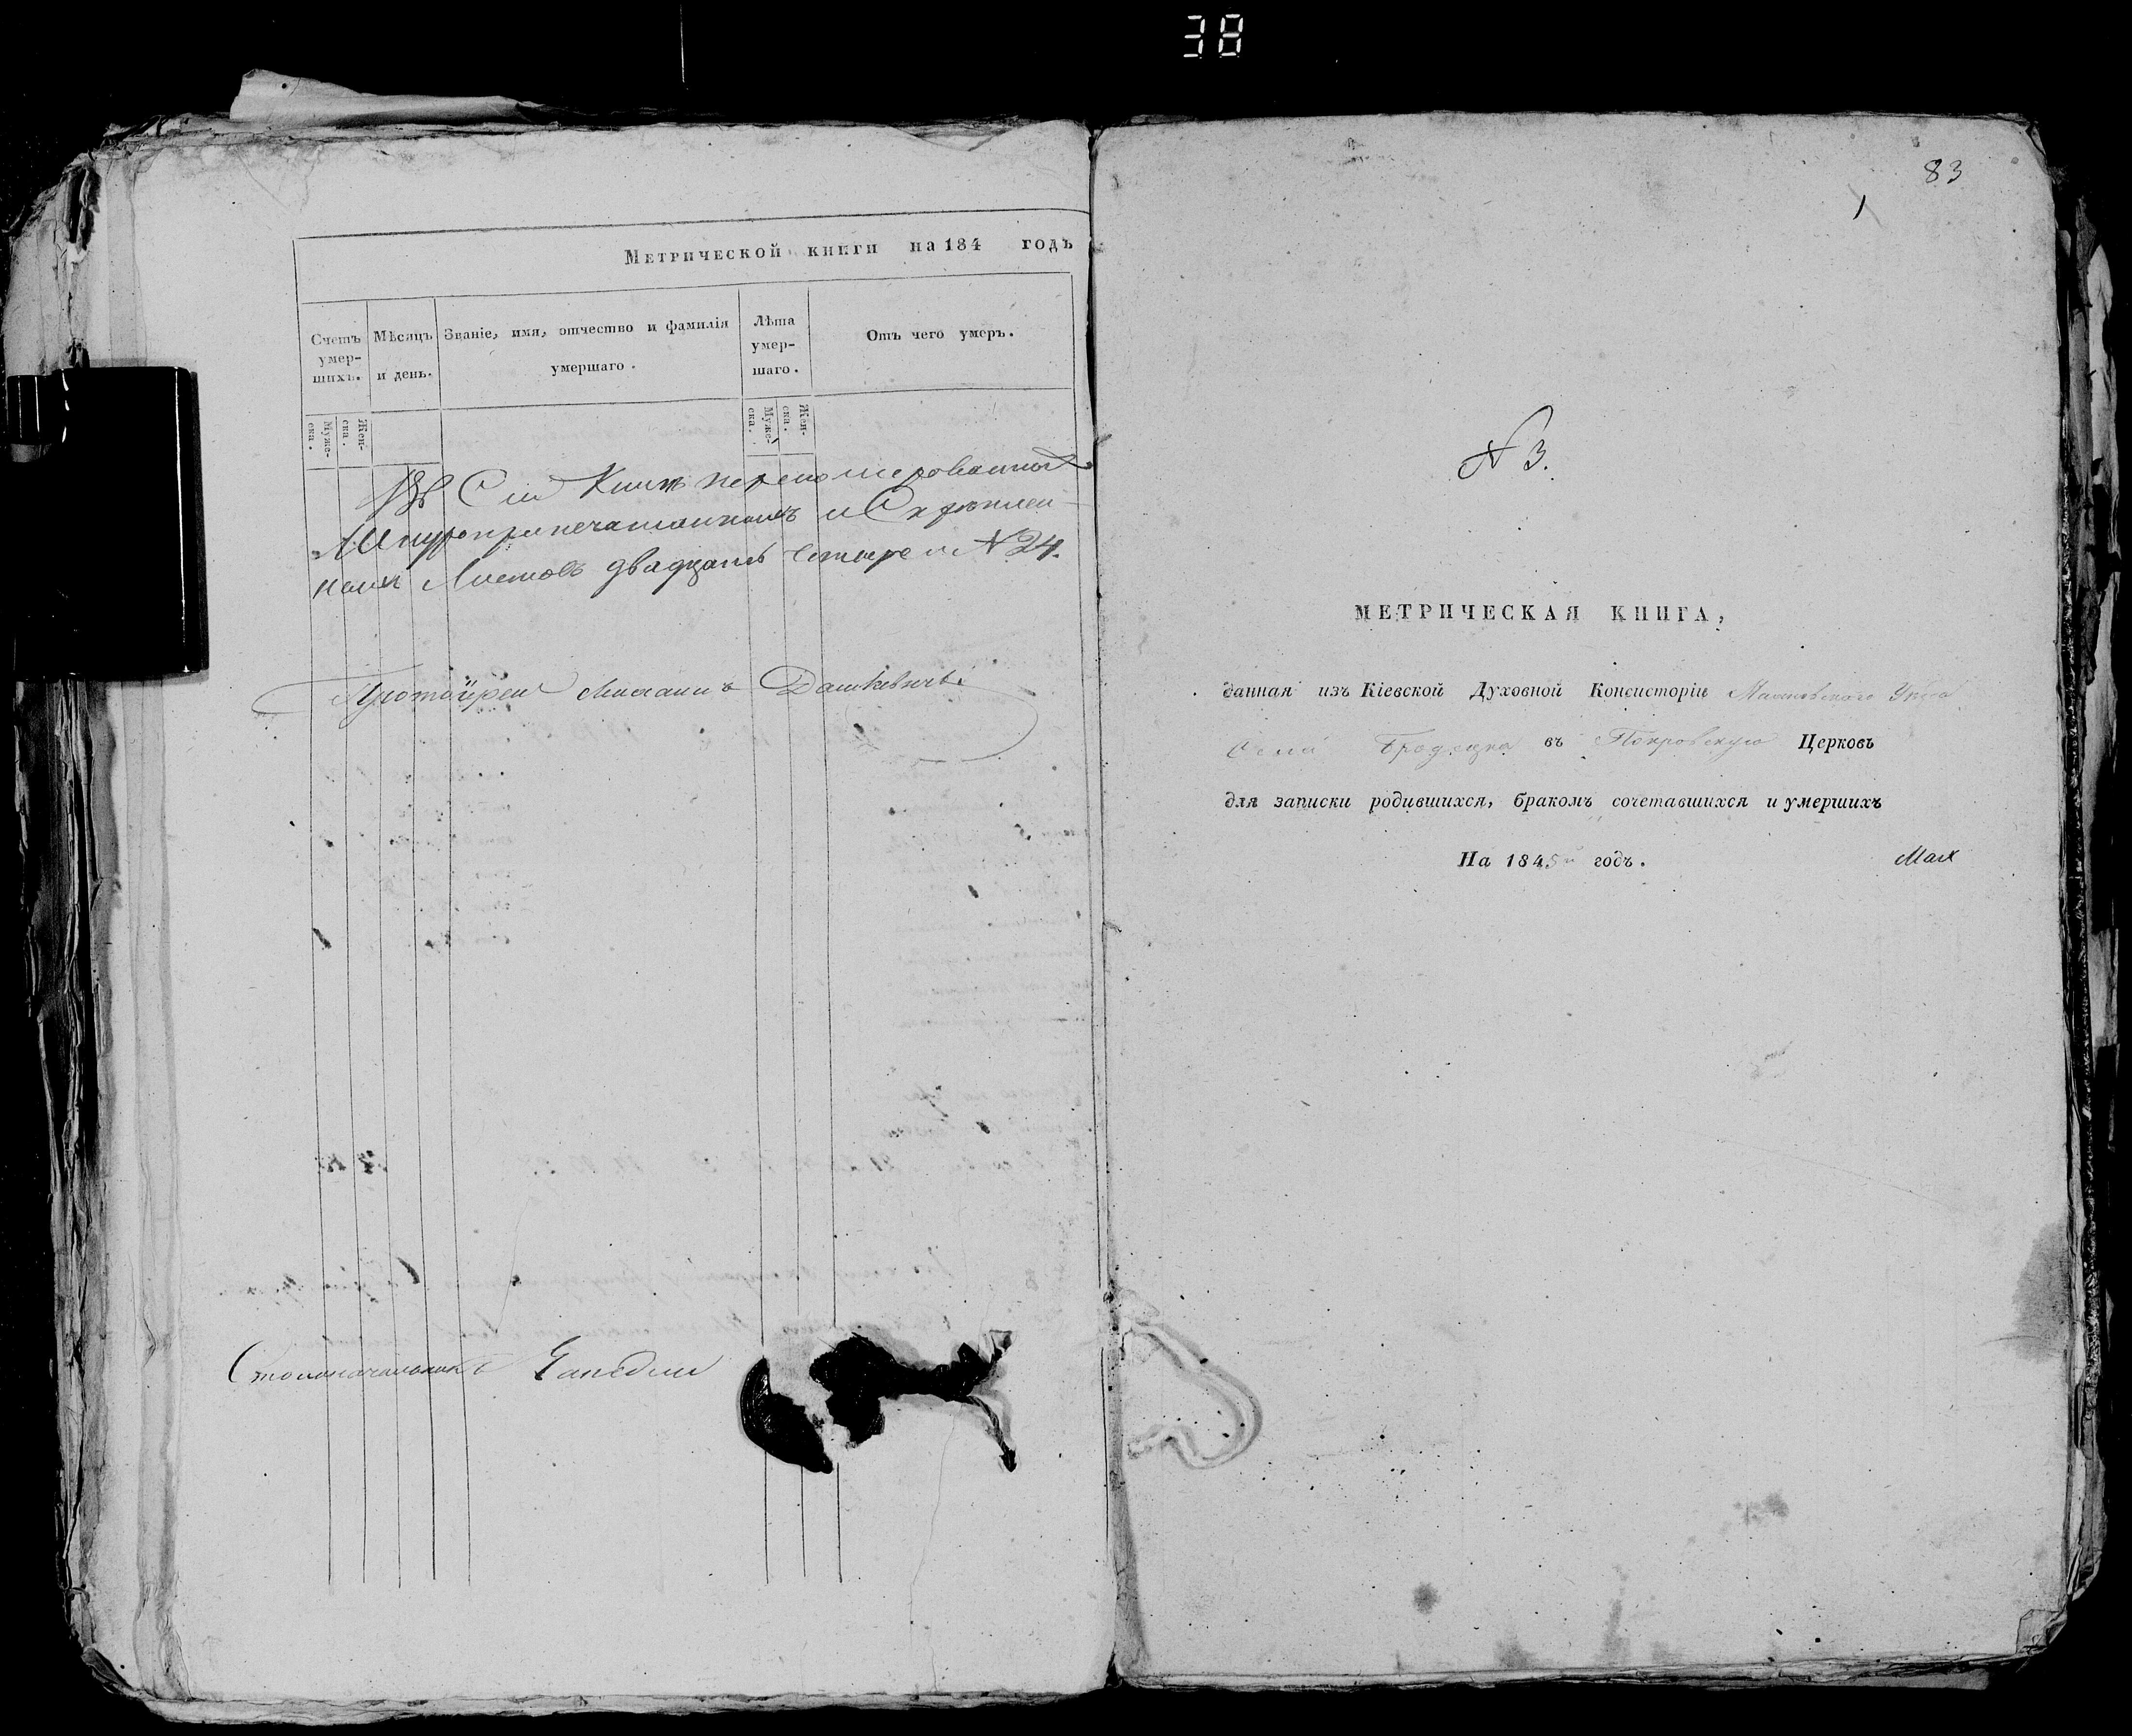 38
Метрической книги на 184 годъ
Счетъ умер-шихъ.
Мѣсяцъ и день.
Званіе, имя, отчество и фамилія умершаго.
Лѣта умер-шаго.
Отъ чего умеръ.
Муже-ска.
Жен-ска.
Муже-ска.
Жен-ска.
Въ Сей Книгѣ перенумерованныхъ
Шнуроприпечатанныхъ и Скрѣплен-
ныхъ Листовъ двадцать четыре №24.
Протоіерей Михаилъ Дашкевичь
Столоначальникъ
83
1
№ 3.
МЕТРИЧЕСКАЯ КНИГА,
данная изъ Кіевской Духовной Консисторіи Махновского Уѣзда
Села Бродецка въ Покровскую Церковь
для записки родившихся, бракомъ сочетавшихся и умершихъ
На 1845й годъ.
Мах